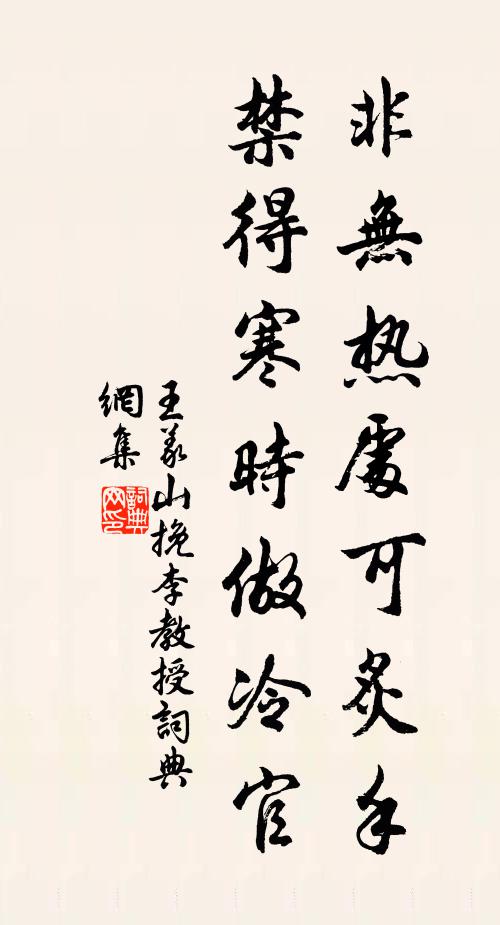 非無热處可炙手
禁得寒時做冷官
王义山挽李教授詞典
網集
詞典网印